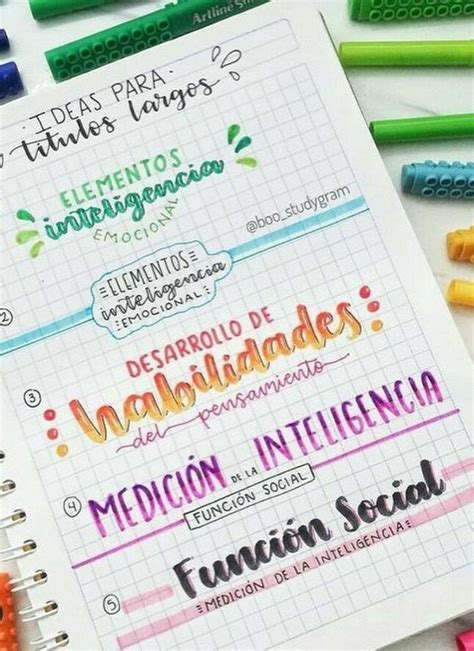 Artline
· IDEAS PARA ·
títulos largos
ELEMENTOS
inteligencia
EMOCIONAL
@boo_studygram
2
ELEMENTOS
inteligencia
EMOCIONAL
3
DESARROLLO DE
habilidades
del pensamiento
4
MEDICIÓN DE LA INTELIGENCIA
FUNCIÓN SOCIAL
5
Función Social
MEDICIÓN DE LA INTELIGENCIA